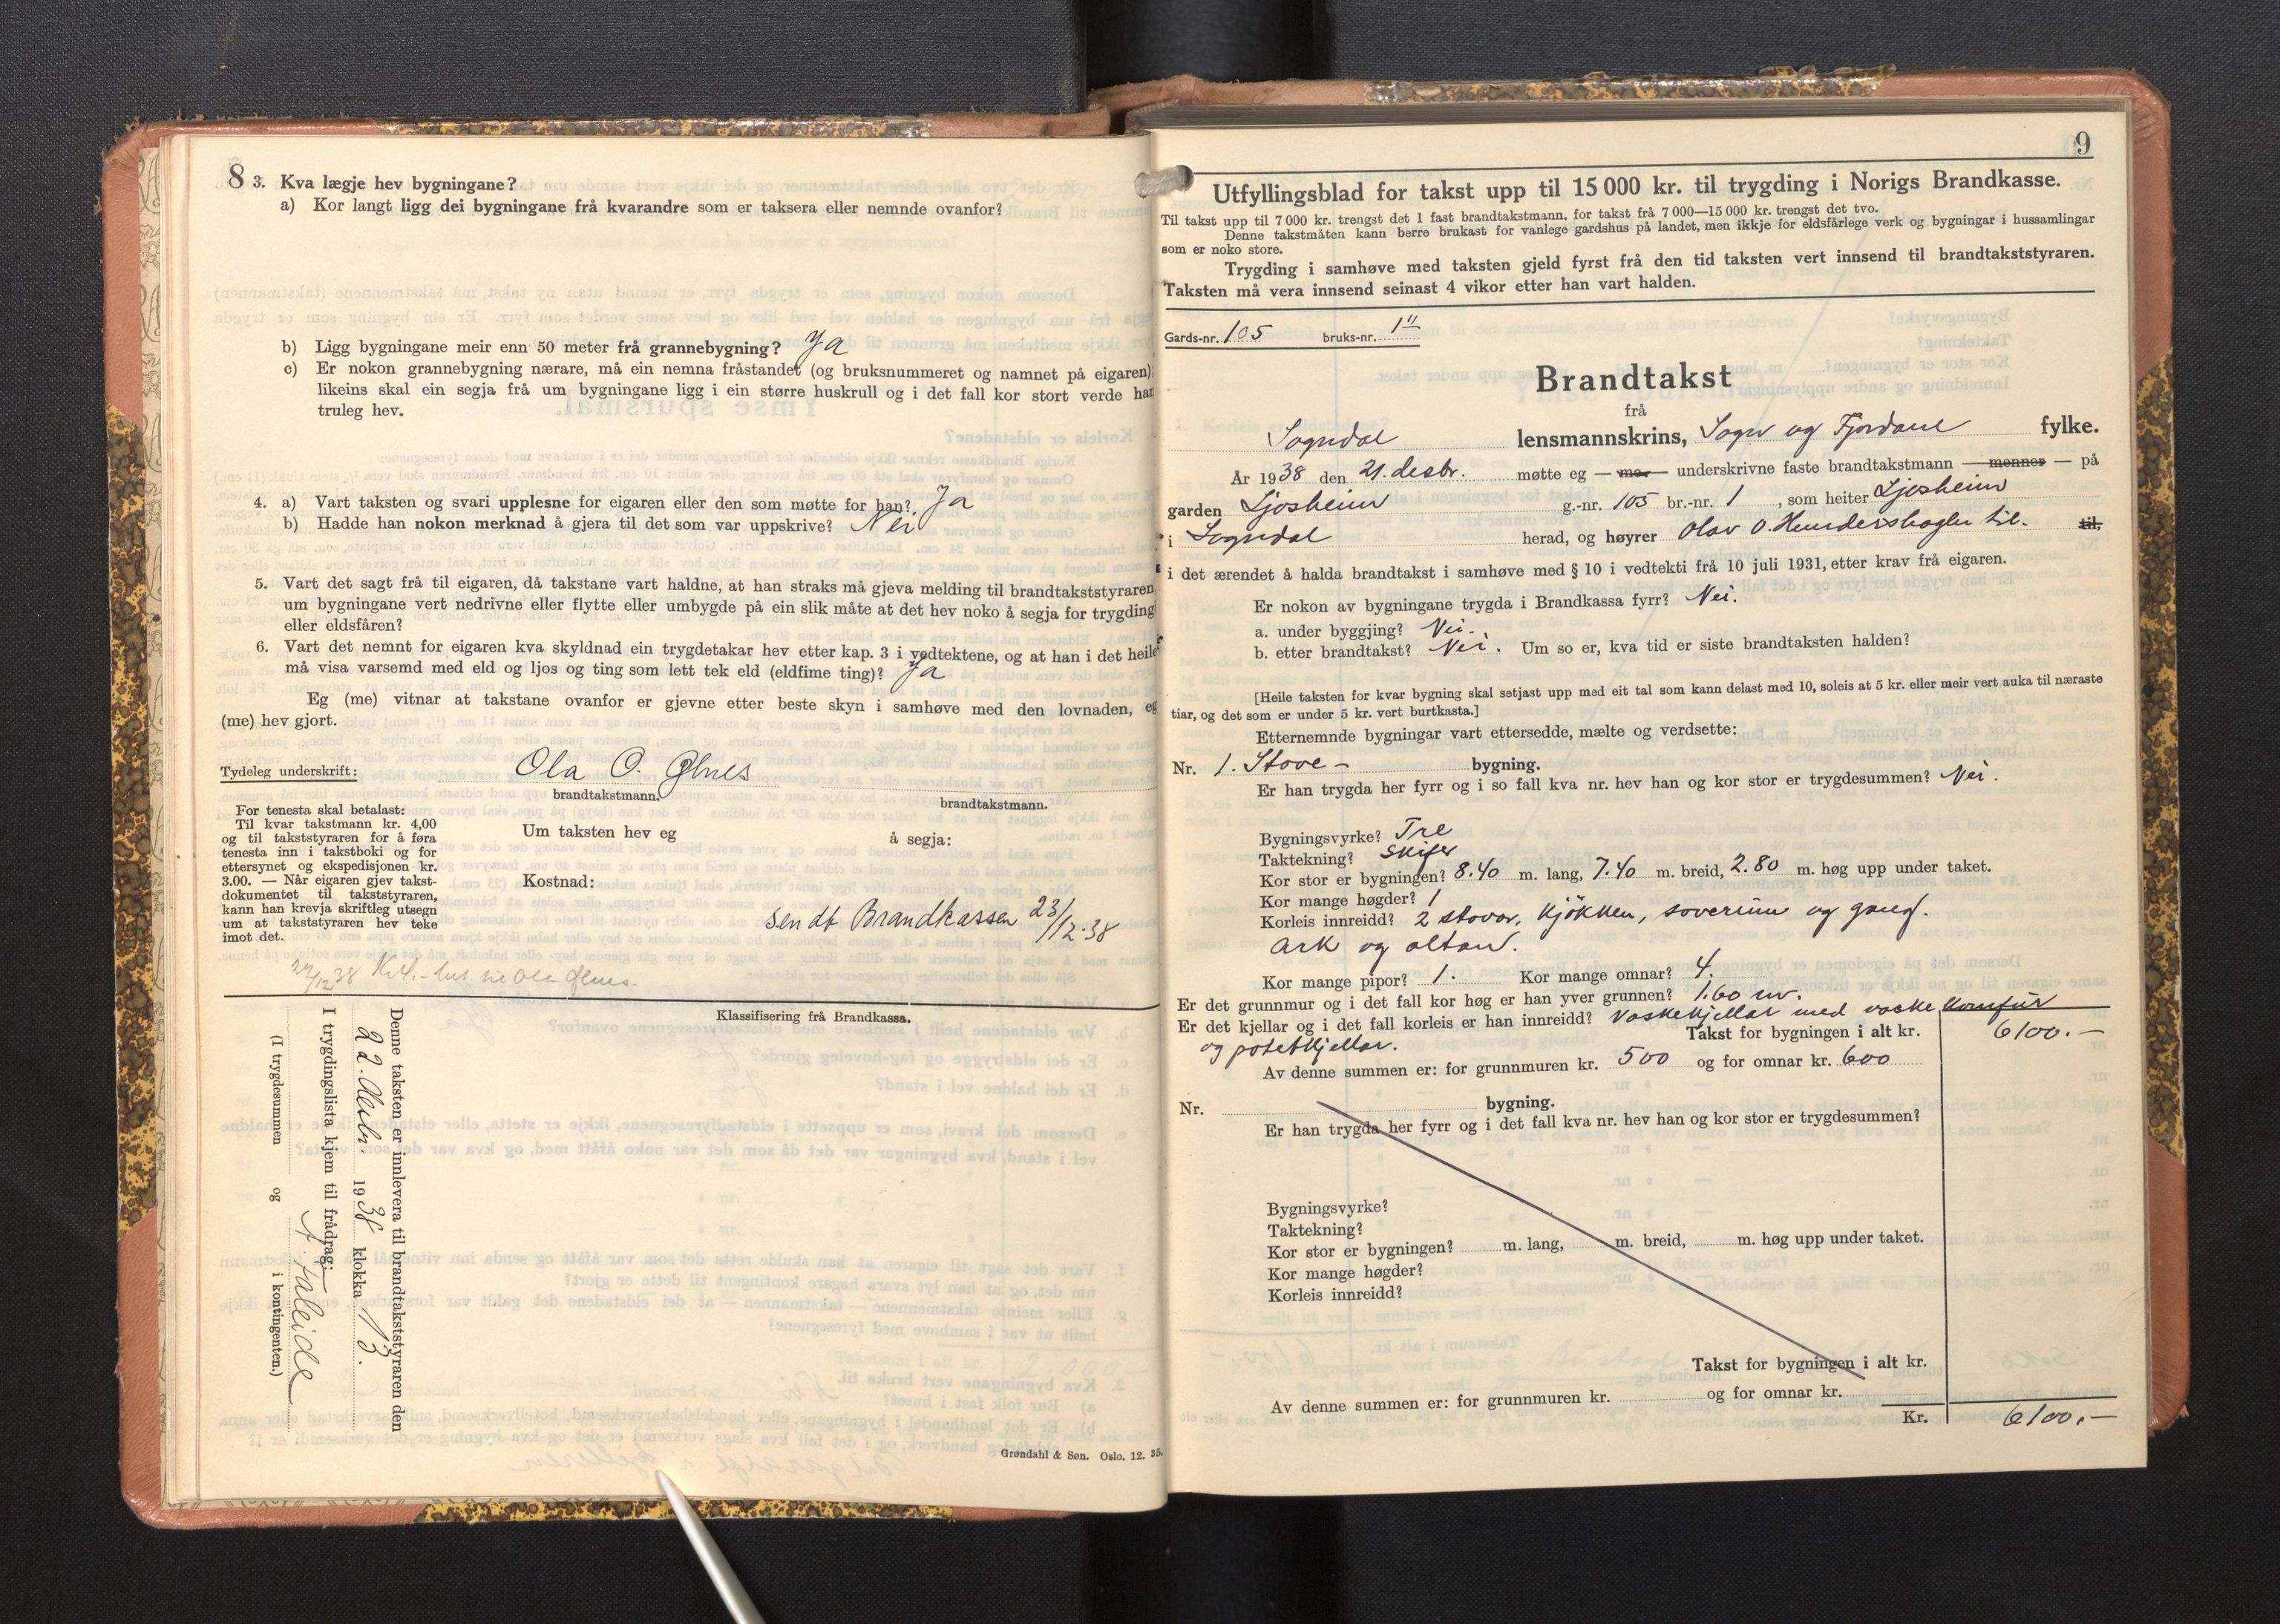 8
3. Kva lægje hev bygningane?
a) Kor langt ligg dei bygningane frå kvarandre som er taksera eller nemnde ovanfor?
b) Ligg bygningane meir enn 50 meter frå grannebygning? Ja
c) Er nokon grannebygning nærare, må ein nemna fråstandet (og bruksnummeret og namnet på eigaren);
likeins skal ein segja frå um bygningane ligg i ein større huskrull og i det fall kor stort verde han
truleg hev.
4. a) Vart taksten og svari upplesne for eigaren eller den som møtte for han? Ja
b) Hadde han nokon merknad å gjera til det som var uppskrive? Nei
5. Vart det sagt frå til eigaren, då takstane vart haldne, at han straks må gjeva melding til brandtakststyraren
um bygningane vert nedrivne eller flytte eller umbygde på ein slik måte at det hev noko å segja for trygding
eller eldsfåren?
6. Vart det nemnt for eigaren kva skyldnad ein trygdetakar hev etter kap. 3 i vedtektene, og at han i det heile
må visa varsemd med eld og ljos og ting som lett tek eld (eldfime ting)? Ja
Eg (me) vitnar at takstane ovanfor er gjevne etter beste skyn i samhøve med den lovnaden, eg
(me) hev gjort.
Tydeleg underskrift: Ola O. Ølnes
brandtakstmann. brandtakstmann.
For tenesta skal betalast:
Til kvar takstmann kr. 4,00
og til takststyraren for å føra
tenesta inn i takstboki og for
ettersynet og ekspedisjonen kr.
3.00. — Når eigaren gjev takst-
dokumentet til takststyraren,
kann han krevja skriftleg utsegn
um at takststyraren hev teke
imot det.
Um taksten hev eg å segja:
Kostnad:
sendt Brandkassen 23/12-38
Klassifisering frå Brandkassa.
Denne taksten er innlevera til brandtakststyraren den
22. desbr. 1938 klokka 13.
I trygdingslista kjem til frådrag:
(I trygdesummen og i kontingenten.)
Grøndahl & Søn. Oslo. 12. 35.
9
Utfyllingsblad for takst upp til 15 000 kr. til trygding i Norigs Brandkasse.
Til takst upp til 7 000 kr. trengst det 1 fast brandtakstmann, for takst frå 7 000—15 000 kr. trengst det tvo.
Denne takstmåten kann berre brukast for vanlege gardshus på landet, men ikkje for eldsfårlege verk og bygningar i hussamlingar
som er noko store.
Trygding i samhøve med taksten gjeld fyrst frå den tid taksten vert innsend til brandtakststyraren.
Taksten må vera innsend seinast 4 vikor etter han vart halden.
Gards-nr. 105 bruks-nr. 1"
Brandtakst
frå
Sogndal lensmannskrins, Sogn og Fjordane fylke.
År 1938 den 21. desbr. møtte eg — me — underskrivne faste brandtakstmann — menner — på
garden Ljosheim g.-nr. 105 br.-nr. 1, som heiter Ljosheim
i Sogndal herad, og høyrer Olav O. til. til.
i det ærendet å halda brandtakst i samhøve med § 10 i vedtekti frå 10 juli 1931, etter krav frå eigaren.
Er nokon av bygningane trygda i Brandkassa fyrr? Nei.
a. under byggjing? Nei.
b. etter brandtakst? Nei. Um so er, kva tid er siste brandtaksten halden?
[Heile taksten for kvar bygning skal setjast upp med eit tal som kann delast med 10, soleis at 5 kr. eller meir vert auka til næraste
tiar, og det som er under 5 kr. vert burtkasta.]
Etternemnde bygningar vart ettersedde, mælte og verdsette:
Nr. 1. Stove- bygning.
Er han trygda her fyrr og i so fall kva nr. hev han og kor stor er trygdesummen? Nei.
Bygningsvyrke? Tre
Taktekning? Skifer
Kor stor er bygningen? 8.40 m. lang, 7.40 m. breid, 2.80 m. høg upp under taket.
Kor mange høgder? 1
Korleis innreidd? 2 stovor, kjökken, soverum og gang.
Ark og altan.
Kor mange pipor? 1. Kor mange omnar? 4.
Er det grunnmur og i det fall kor høg er han yver grunnen? 1.60 m.
Er det kjellar og i det fall korleis er han innreidd? Vaskekjellar med vaske komfür
og potetkjellar. Takst for bygningen i alt kr. 6100.—
Av denne summen er: for grunnmuren kr. 500 og for omnar kr. 600
Nr. bygning.
Er han trygda her fyrr og i det fall kva nr. hev han og kor stor er trygdesummen?
Bygningsvyrke?
Taktekning?
Kor stor er bygningen? m. lang, m. breid, m. høg upp under taket.
Kor mange høgder?
Korleis innreidd?
Takst for bygningen i alt kr.
Av denne summen er: for grunnmuren kr. og for omnar kr.
Kr. 6100.—